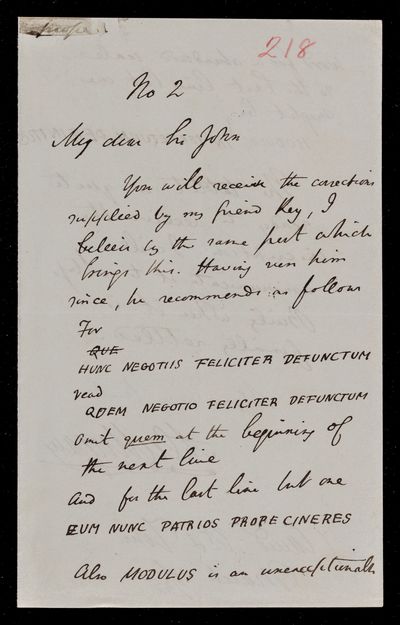 218
No 2
My dear Sir John
You will receive the corrections
supplied by my friend Key, I
believe by the same post which
brings this. Having seen him
since, he recommends as follows
For
QUE
HUNC NEGOTIIS FELICITER DEFUNCTUM
read
QUEM NEGOTIO FELICITER DEFUNCTUM
Omit quem at the beginning of
the next line
And for the last line but one
EUM NUNC PATRIOS PROPE CINERES
Also MODULUS is an unexceptionable